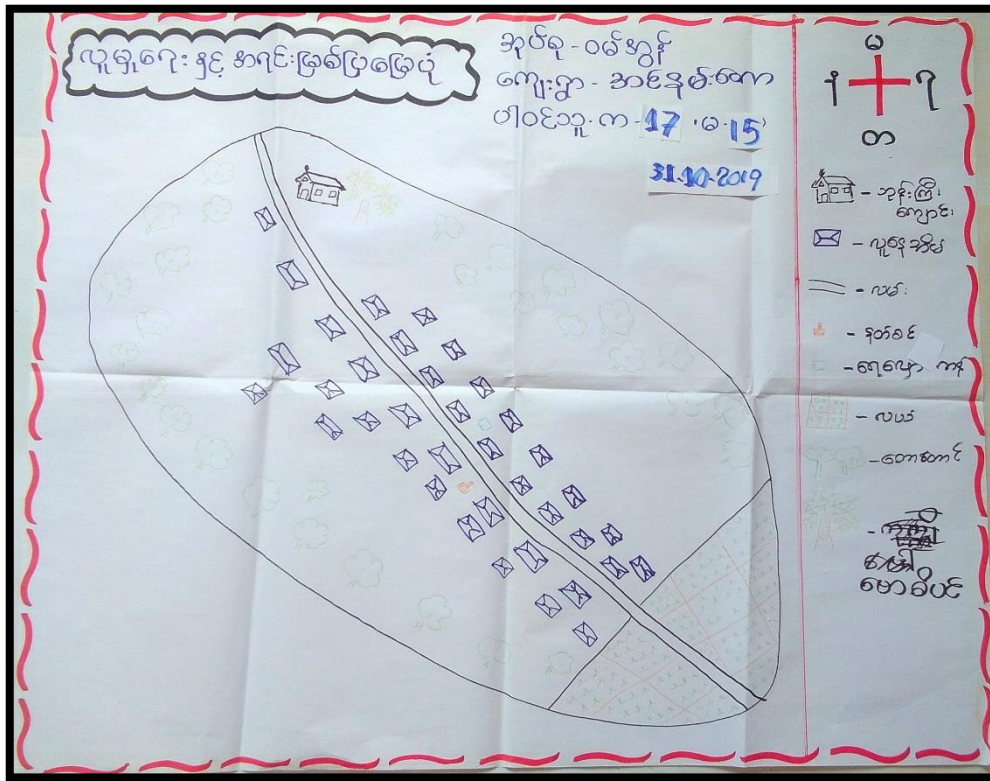 လူမှုရေး နှင့် အရင်းမြစ်ပြမြေပုံ
အုပ်စု - ဝမ်အွန်
ကျေးရွာ - အင်နမ်းတော
ပါဝင်သူ - က - 17 ၊ မ - 15
31-10-2019
မ
န ရ
တ
- ဘုန်းကြီးကျောင်း
- လူနေအိမ်
- လမ်း
- နတ်စင်
- ရေလှောင်ကန်
- လယ်
- တောတောင်
- ဗောဓိပင်